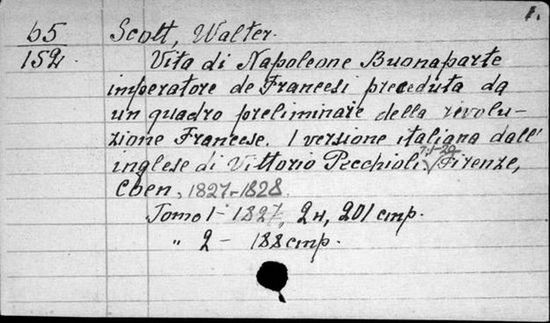 1.
65
152
Scott, Walter.
Vita di Napoleone Buonaparte
imperatore de Francesi preceduta da
un quadro preliminare della rivolu-
zione Francese. I versione italiana dall'
inglese di Vittorio Pecchioli. Firenze,
Coen, 1827-1828.
Tomo 1 - 1827, 2н, 201 стр.
" 2 - 188 стр.